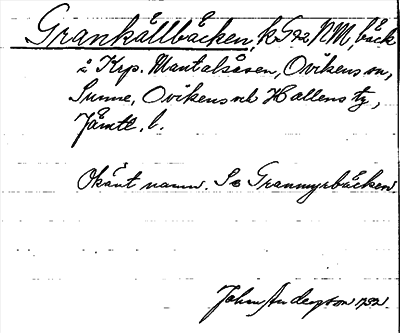 Grankällbäcken, k 592 NM, bäck
i Krp. Mantalsåsen, Ovikens sn,
Sunne, Ovikens nb Hallens tg,
Jämtl. l.
Okänt namn. Se Grannyrbäcken
Johan Anderzson 1932